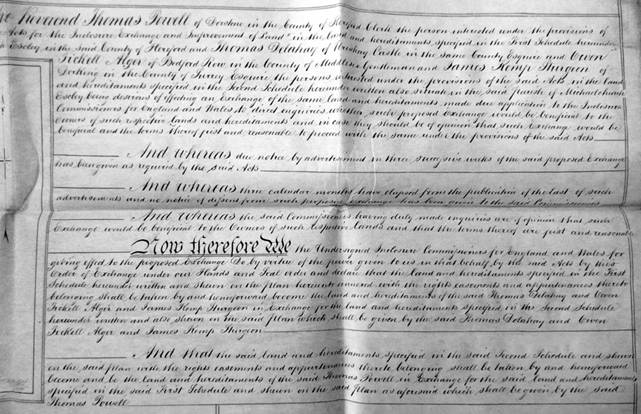 Reverend Thomas Powell of Dorstone in the County of Hereford Clerk the person interested under the provisions of
Acts for the Inclosure Exchange and Improvement of Land" in the land and hereditaments specified in the First Schedule hereunder
Escley in the said County of Hereford and Thomas Delahay of Castle in the same County Esquire and Owen
Tickell Alger of Bedford Row in the County of Middlesex Gentleman and James Kemp Sturgeon of
Dorking in the County of Surrey Esquire the persons interested under the provisions of the said Acts in the land
and hereditaments specified in the Second Schedule hereunder written also situate in the said parish of Michaelchurch
Escley being desirous of effecting an Exchange of the same lands and hereditaments made due application to the Inclosure
Commissioners for England and Wales to direct inquiries whether such proposed Exchange would be beneficial to the
Owners of such respective lands and hereditaments and in case they should be of opinion that such Exchange would be
beneficial and the terms thereof just and reasonable to proceed with the same under the provisions of the said Acts
And whereas due notice by advertisement in three successive weeks of the said proposed Exchange
has been given as required by the said Acts
And whereas three calendar months have elapsed from the publication of the last of such
advertisements and no notice of dissent from such proposed exchange has been given to the said Commissioners
And whereas the said Commissioners having duly made inquiries are of opinion that such
Exchange would be beneficial to the Owners of such respective lands and that the terms thereof are just and reasonable
Now therefore We the Undersigned Inclosure Commissioners for England and Wales for
giving effect to the proposed Exchange Do by virtue of the power given to us in that behalf by the said Acts by this
Order of Exchange under our Hands and Seal order and declare that the land and hereditaments specified in the First
Schedule hereunder written and shewn on the plan hereunto annexed with the rights easements and appurtenances thereto
belonging shall be taken by and henceforward become the land and hereditaments of the said Thomas Delahay and Owen
Tickell Alger and James Kemp Sturgeon in Exchange for the land and hereditaments specified in the Second Schedule
hereunder written and also shewn on the said plan which shall be given by the said Thomas Delahay and Owen
Tickell Alger and James Kemp Sturgeon
And that the said land and hereditaments specified in the said Second Schedule and shewn
on the said plan with the rights easements and appurtenances thereto belonging shall be taken by and henceforward
become and be the land and hereditaments of the said Thomas Powell in Exchange for the said land and hereditaments
specified in the said First Schedule and shewn on the said plan as aforesaid which shall be given by the said
Thomas Powell